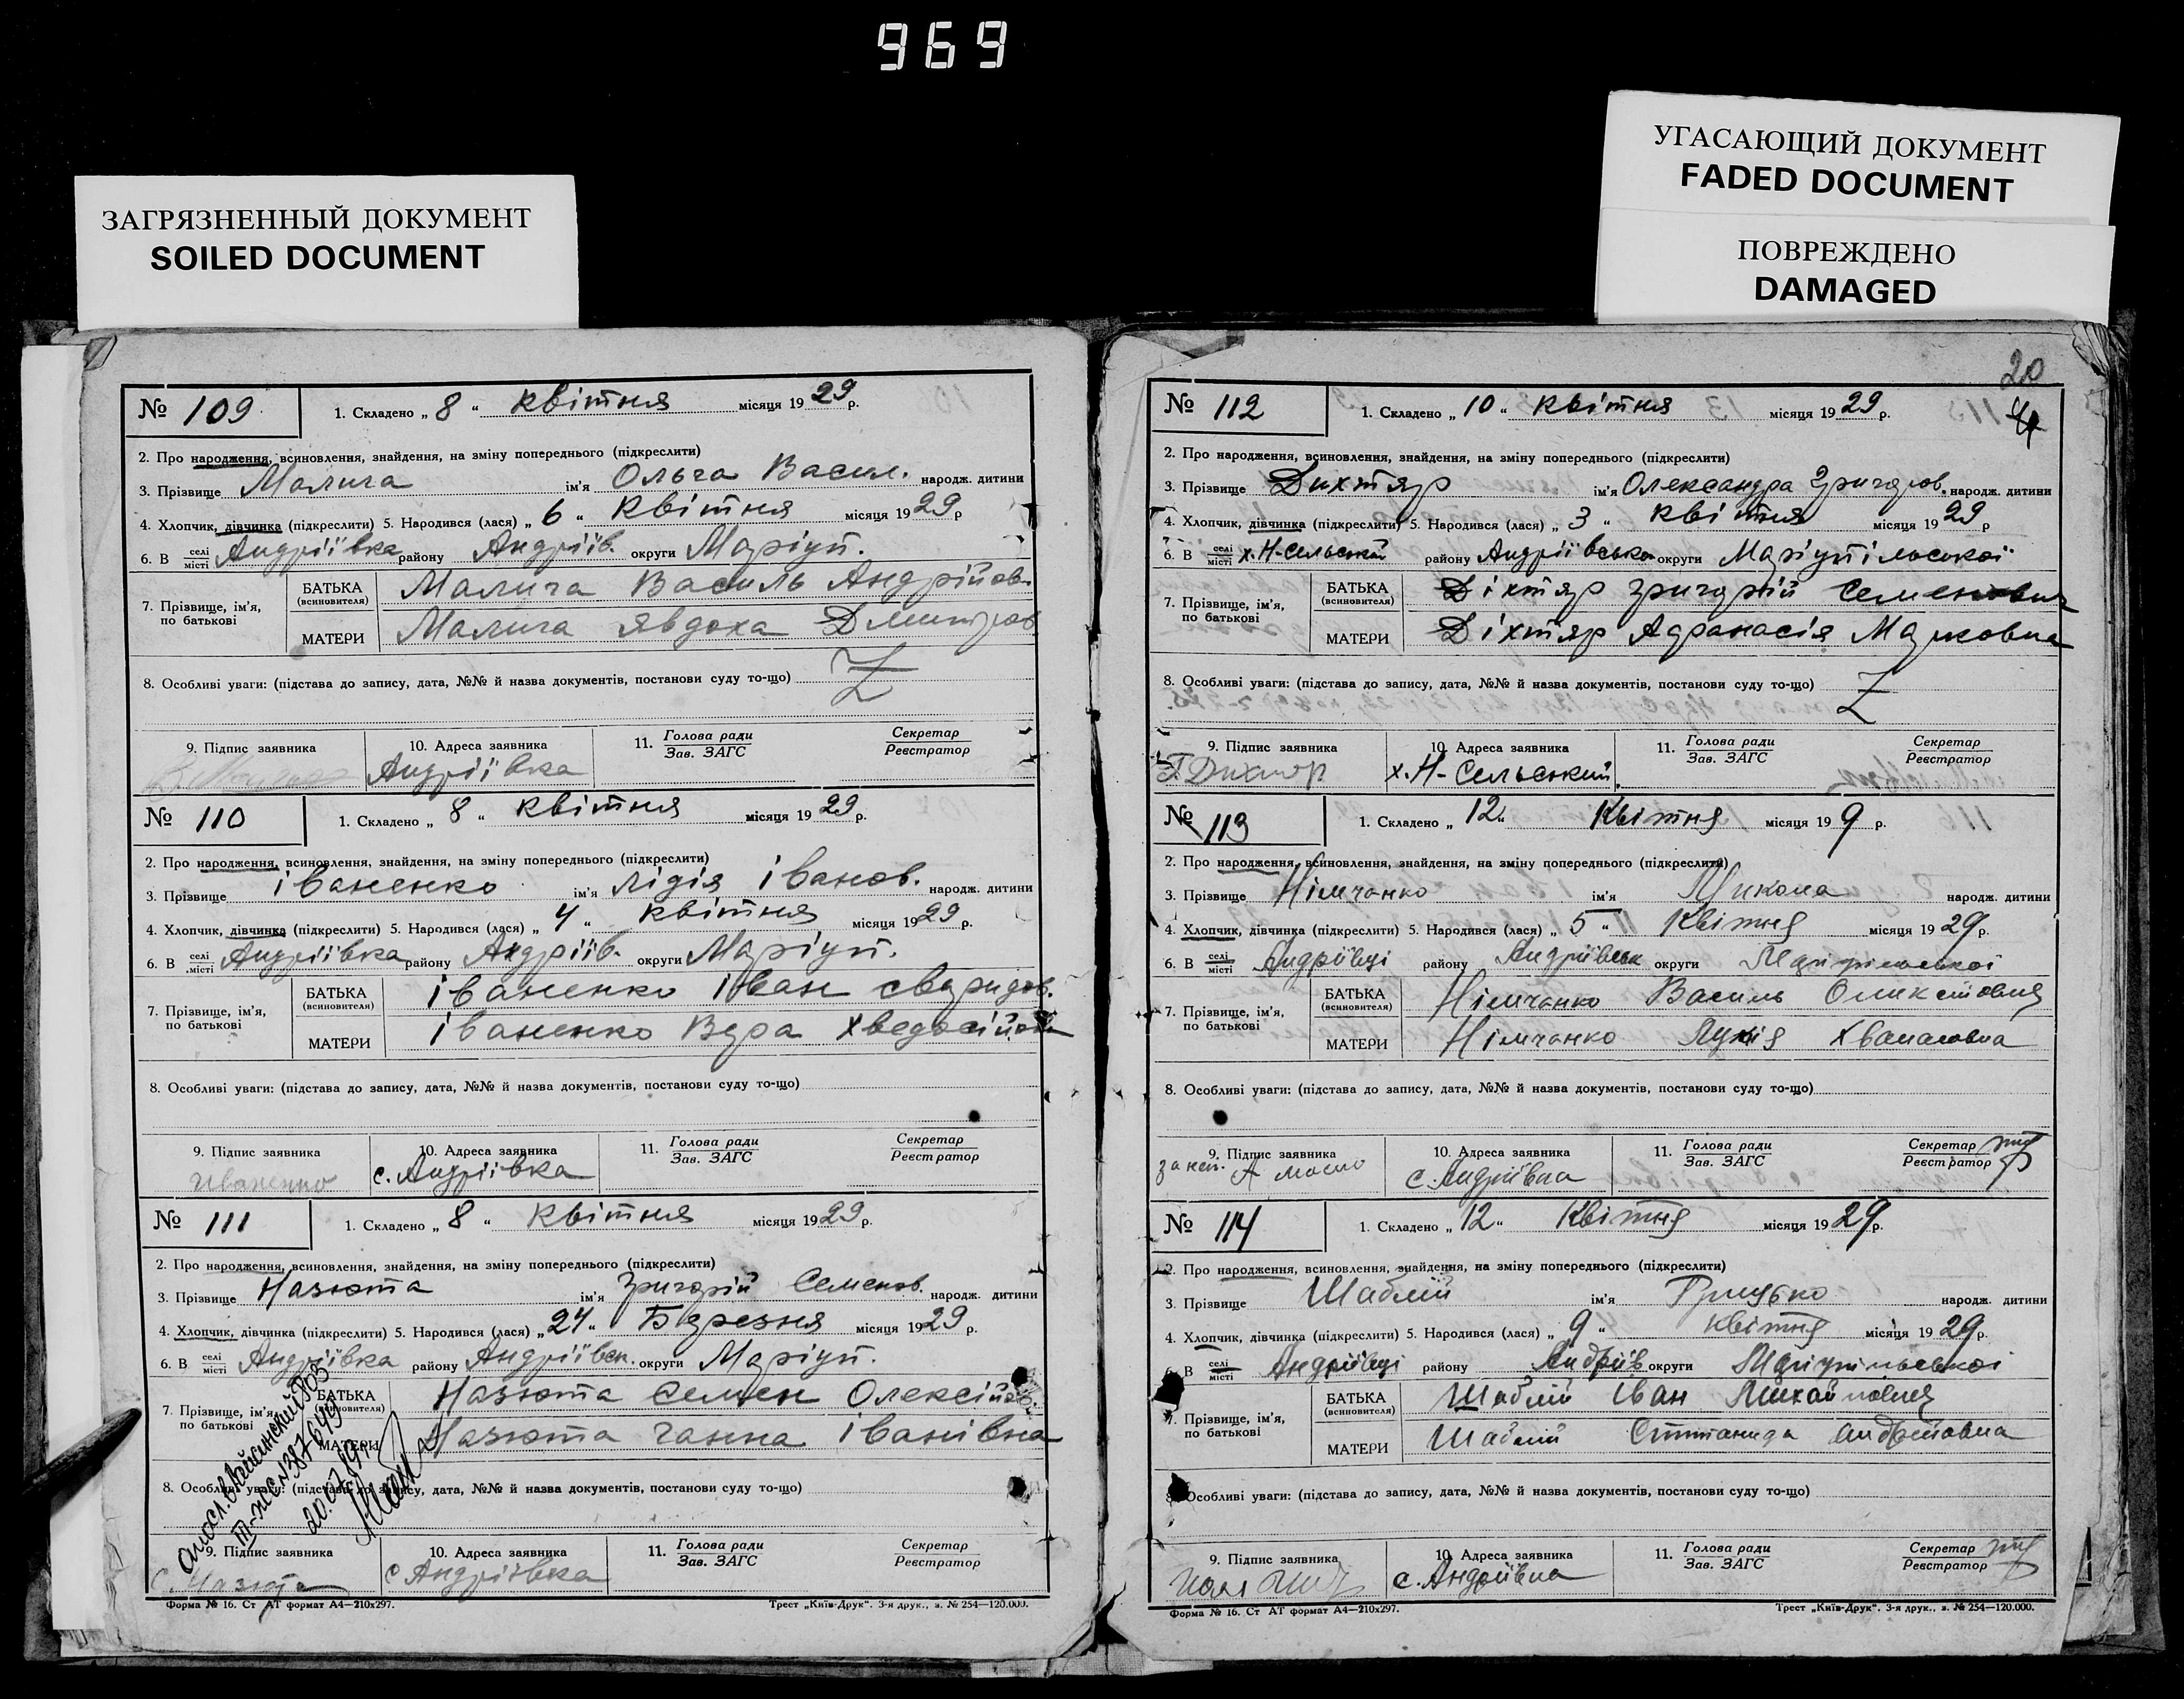 969
ЗАГРЯЗНЕННЫЙ ДОКУМЕНТ
SOILED DOCUMENT
УГАСАЮЩИЙ ДОКУМЕНТ
FADED DOCUMENT
ПОВРЕЖДЕНО
DAMAGED
№ 109
1. Складено „ 8 “ квітня місяця 1929 р.
2. Про народження, всиновлення, знайдення, на зміну попереднього (підкреслити)
3. Прізвище Малича ім'я Ольга Васил. народж. дитини
4. Хлопчик, дівчинка (підкреслити) 5. Народився (лася) „ 6 “ квітня місяця 1929 р
6. В селі місті Андріївка району Андріїв. округи Маріуп.
7. Прізвище, ім'я, по батькові
БАТЬКА (всиновителя) Малича Василь Андрійов.
МАТЕРИ Малича Явдоха Дмитров
8. Особливі уваги: (підстава до запису, дата, №№ й назва документів, постанови суду то-що) Z
9. Підпис заявника
10. Адреса заявника Андріївка
11. Голова ради Зав. ЗАГС
Секретар Реєстратор
№ 110
1. Складено „ 8 “ квітня місяця 1929 р.
2. Про народження, всиновлення, знайдення, на зміну попереднього (підкреслити)
3. Прізвище іваненко ім'я лідія іванов. народж. дитини
4. Хлопчик, дівчинка (підкреслити) 5. Народився (лася) „ 4 “ квітня місяця 1929 р.
6. В селі місті Андріївка району Андріїв. округи Маріуп.
7. Прізвище, ім'я, по батькові
БАТЬКА (всиновителя) іваненко іван свиридов.
МАТЕРИ іваненко Вєра Хведосій
8. Особливі уваги: (підстава до запису, дата, №№ й назва документів, постанови суду то-що)
9. Підпис заявника Иваненко
10. Адреса заявника с. Андріївка
11. Голова ради Зав. ЗАГС
Секретар Реєстратор
№ 111
1. Складено „ 8 “ квітня місяця 1929 р.
2. Про народження, всиновлення, знайдення, на зміну попереднього (підкреслити)
3. Прізвище Назюта ім'я Григорій Семенов. народж. дитини
4. Хлопчик, дівчинка (підкреслити) 5. Народився (лася) „ 24 “ Березня місяця 1929 р.
6. В селі місті Андріївка району Андріївськ. округи Маріуп.
7. Прізвище, ім'я, по батькові
БАТЬКА (всиновителя) Назюта Семен Олексій
МАТЕРИ Назюта Ганна іванівна
8. Особливі уваги: (підстава до запису, дата, №№ й назва документів, постанови суду то-що)
9. Підпис заявника С. Назюта
10. Адреса заявника с Андріївка
11. Голова ради Зав. ЗАГС
Секретар Реєстратор
Форма № 16. Ст АТ формат А4—210x297.
Трест „Київ-Друк“. 3-я друк., з. № 254—120.000.
20
№ 112
1. Складено „ 10 “ квітня місяця 1929 р.
2. Про народження, всиновлення, знайдення, на зміну попереднього (підкреслити)
3. Прізвище Дихтяр ім'я Олександра Григоров. народж. дитини
4. Хлопчик, дівчинка (підкреслити) 5. Народився (лася) „ 3 “ квітня місяця 1929 р
6. В селі місті х. Н-Сельський району Андріївська округи Маріупільської
7. Прізвище, ім'я, по батькові
БАТЬКА (всиновителя) Діхтяр Григорій Семенович
МАТЕРИ Діхтяр Афанасія Марковна
8. Особливі уваги: (підстава до запису, дата, №№ й назва документів, постанови суду то-що) Z
9. Підпис заявника Г. Дихтяр
10. Адреса заявника х. Н-Сельський
11. Голова ради Зав. ЗАГС
Секретар Реєстратор
№ 113
1. Складено „ 12 “ Квітня місяця 19 9 р.
2. Про народження, всиновлення, знайдення, на зміну попереднього (підкреслити)
3. Прізвище Німчанко ім'я Микола народж. дитини
4. Хлопчик, дівчинка (підкреслити) 5. Народився (лася) „ 5 “ Квітня місяця 1929 р.
6. В селі місті Андріївці району Андріївськ округи Маріупільської
7. Прізвище, ім'я, по батькові
БАТЬКА (всиновителя) Німчанко Василь
МАТЕРИ Німчанко Лукія
8. Особливі уваги: (підстава до запису, дата, №№ й назва документів, постанови суду то-що)
9. Підпис заявника
10. Адреса заявника с. Андріівка
11. Голова ради Зав. ЗАГС
Секретар Реєстратор
№ 114
1. Складено „ 12 “ Квітня місяця 1929 р.
2. Про народження, всиновлення, знайдення, на зміну попереднього (підкреслити)
3. Прізвище Шаблій ім'я Грицько народж. дитини
4. Хлопчик, дівчинка (підкреслити) 5. Народився (лася) „ 9 “ квітня місяця 1929 р.
6. В селі місті Андріївці району Андріїв округи Маріупільської
7. Прізвище, ім'я, по батькові
БАТЬКА (всиновителя) Шаблій Іван Михайлович
МАТЕРИ Шаблій
8. Особливі уваги: (підстава до запису, дата, №№ й назва документів, постанови суду то-що)
9. Підпис заявника
10. Адреса заявника с. Андріівка
11. Голова ради Зав. ЗАГС
Секретар Реєстратор
Форма № 16. Ст АТ формат А4—210x297.
Трест „Київ-Друк“. 3-я друк., з. № 254—120.000.